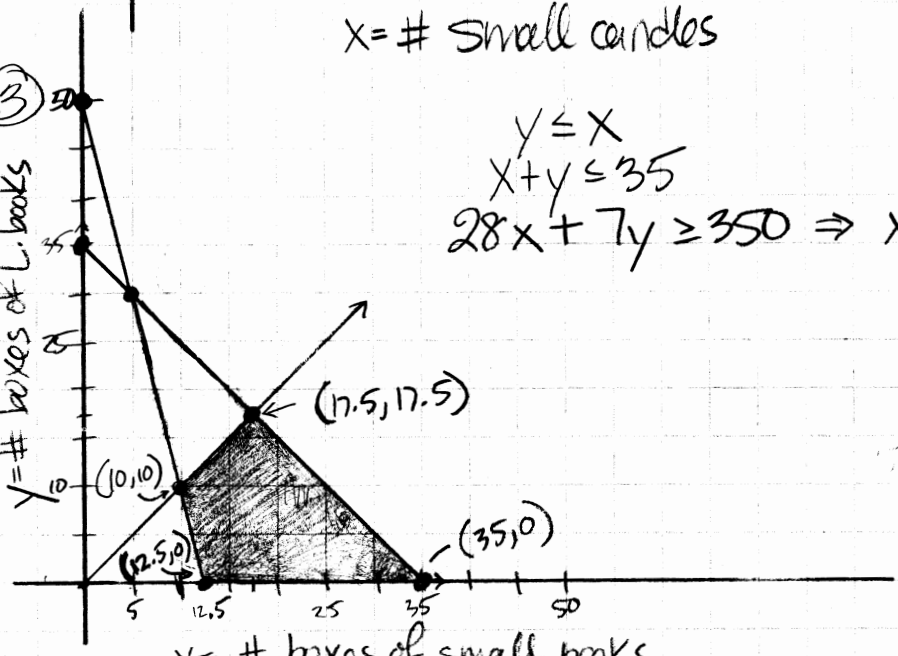 x = # small candles
③ 50
y ≤ x
x + y ≤ 35
28x + 7y ≥ 350 ⇒
y = # boxes of L. books
35
25
(17.5, 17.5)
10 (10,10)
(35,0)
(12.5,0)
5 12.5 25 35 50
x = # boxes of small books